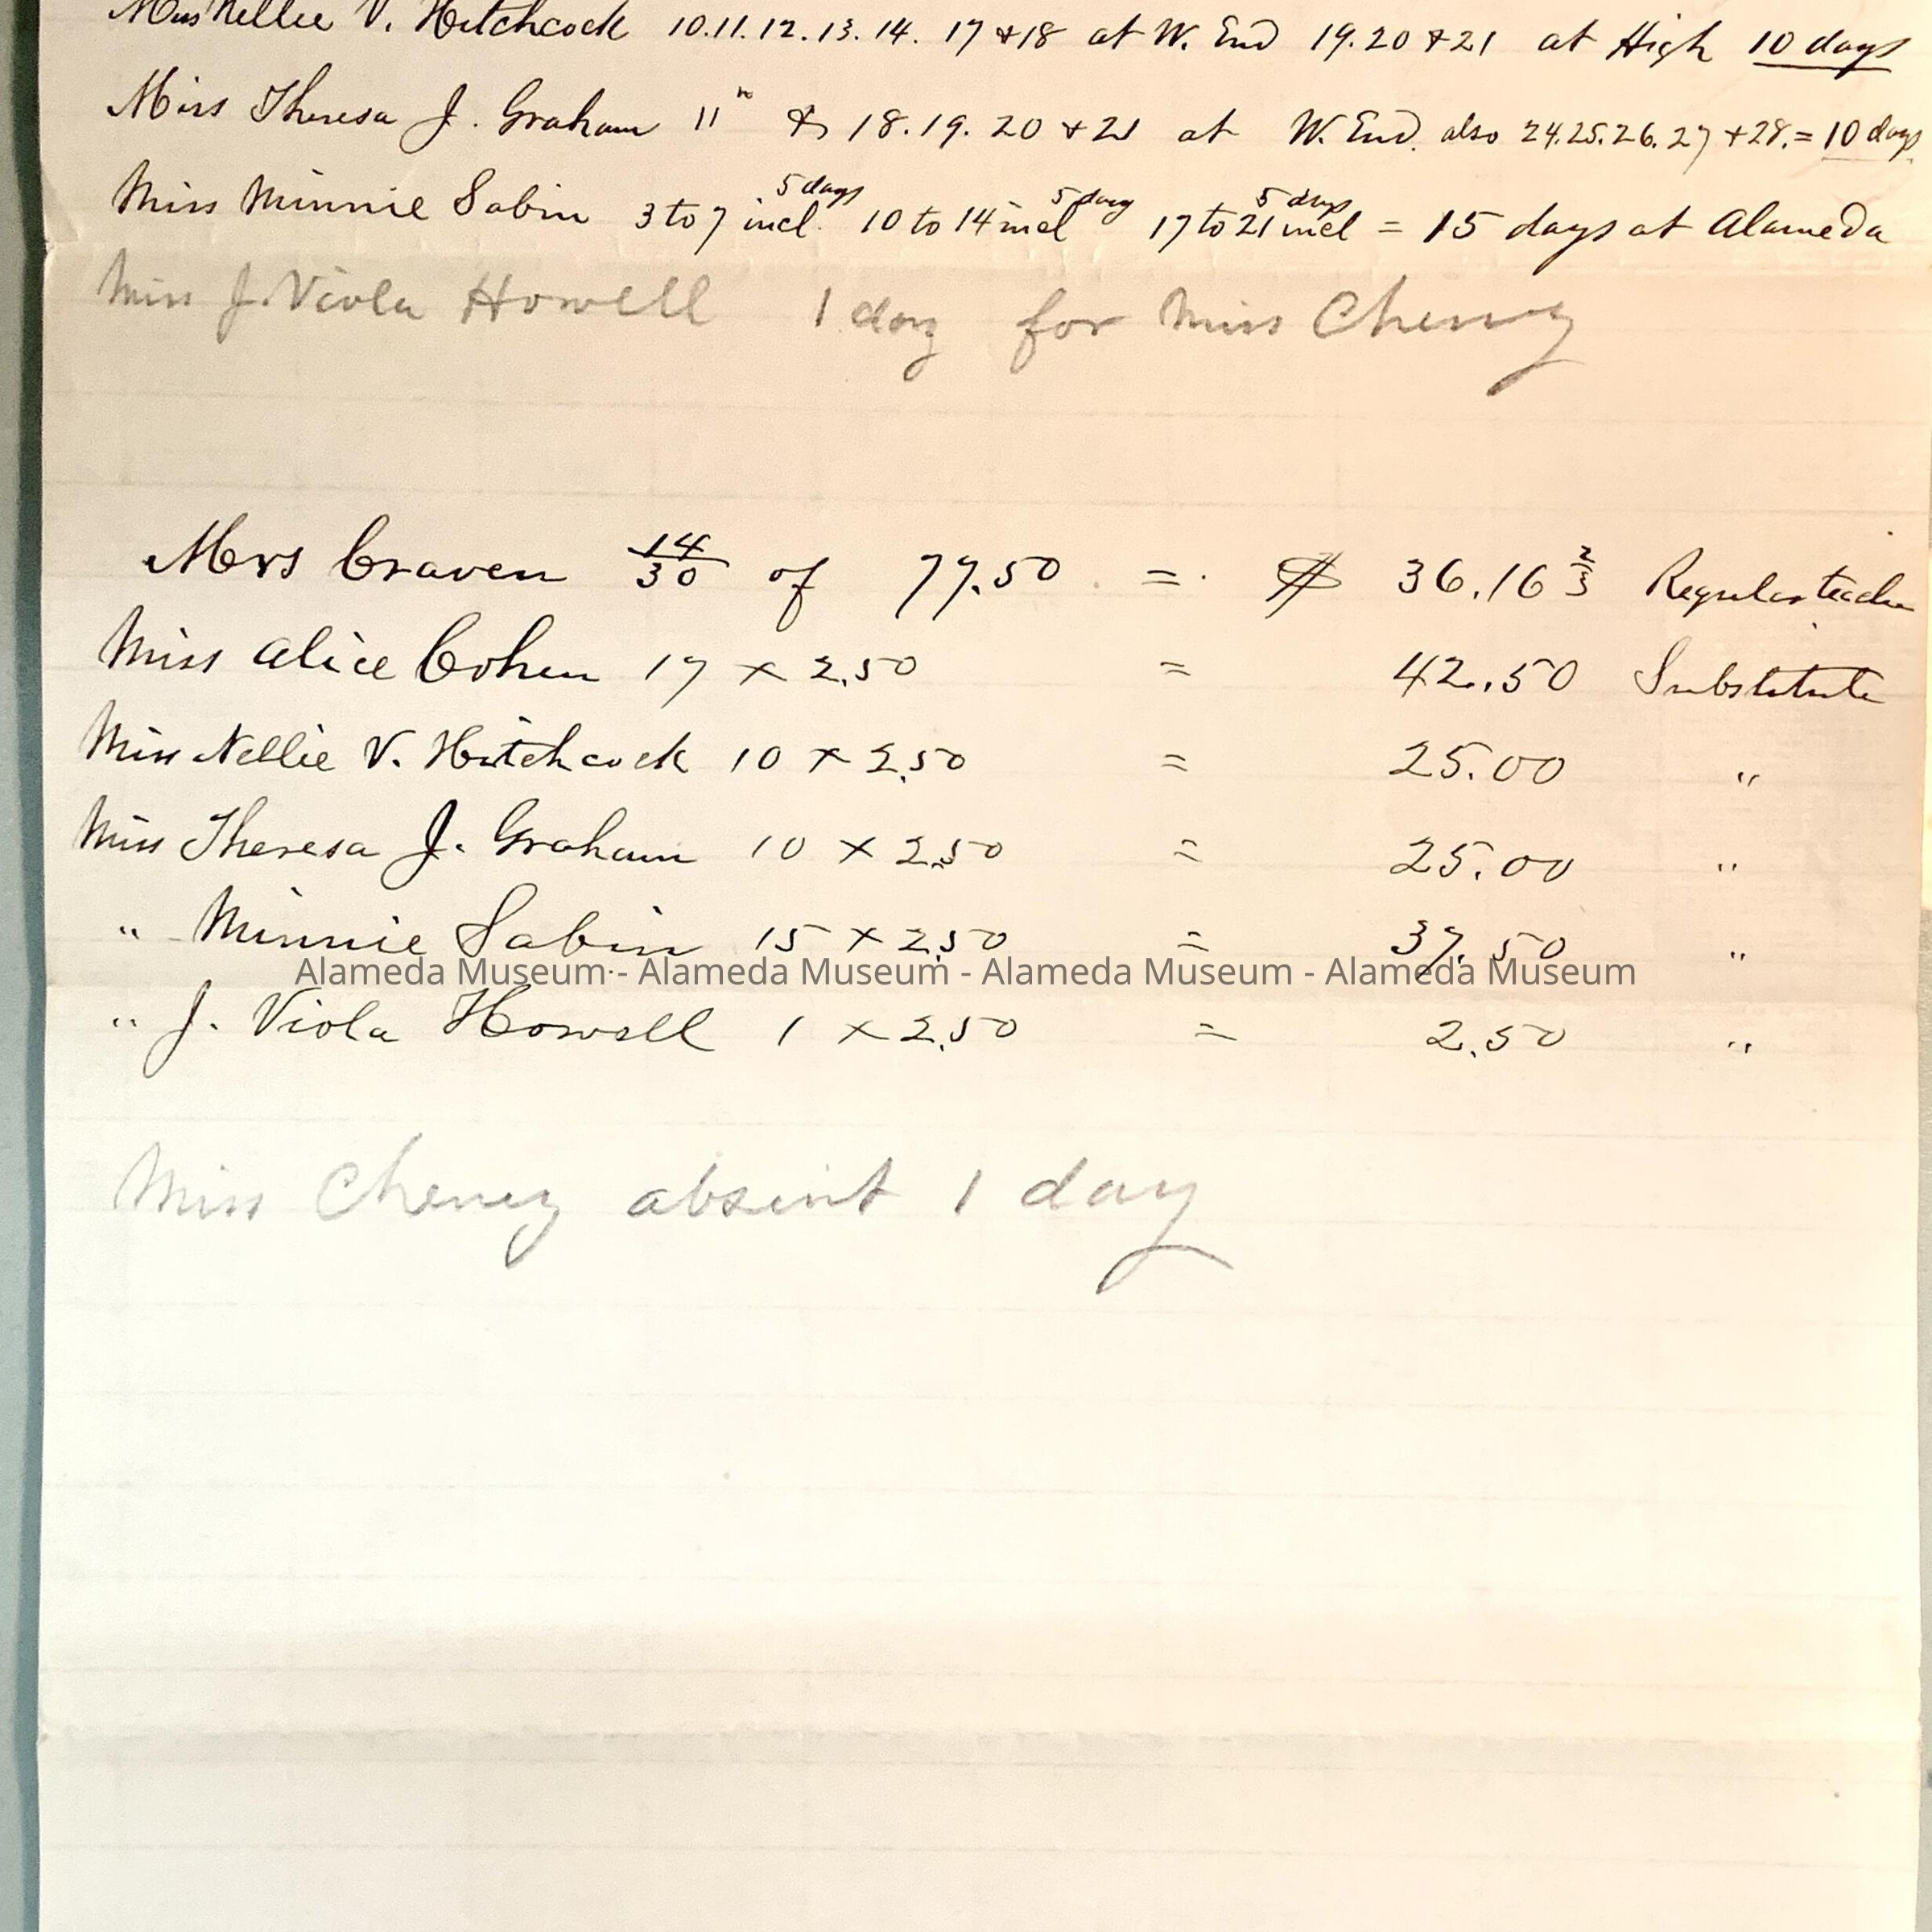 Miss Nellie V. Hitchcock 10.11.12.13.14. 17 & 18 at W. End 19.20 & 21 at High 10 days
Miss Theresa J. Graham 11" & 18.19.20 & 21 at W. End. also 24.25.26.27 & 28. = 10 days
Miss Minnie Sabin 3 to 7 incl. 5 days 10 to 14 incl 5 days 17 to 21 incl 5 days = 15 days at Alameda
Miss J. Viola Howell 1 day for Miss Cheney
Mrs Craven 14/30 of 77.50 = $ 36.16 2/3 Regular teacher
Miss Alice Cohen 17 x 2.50 = 42.50 Substitute
Miss Nellie V. Hitchcock 10 x 2.50 = 25.00 "
Miss Theresa J. Graham 10 x 2.50 = 25.00 "
" Minnie Sabin 15 x 2.50 = 37.50 "
Alameda Museum - Alameda Museum - Alameda Museum - Alameda Museum
" J. Viola Howell 1 x 2.50 = 2.50 "
Miss Cheney absent 1 day